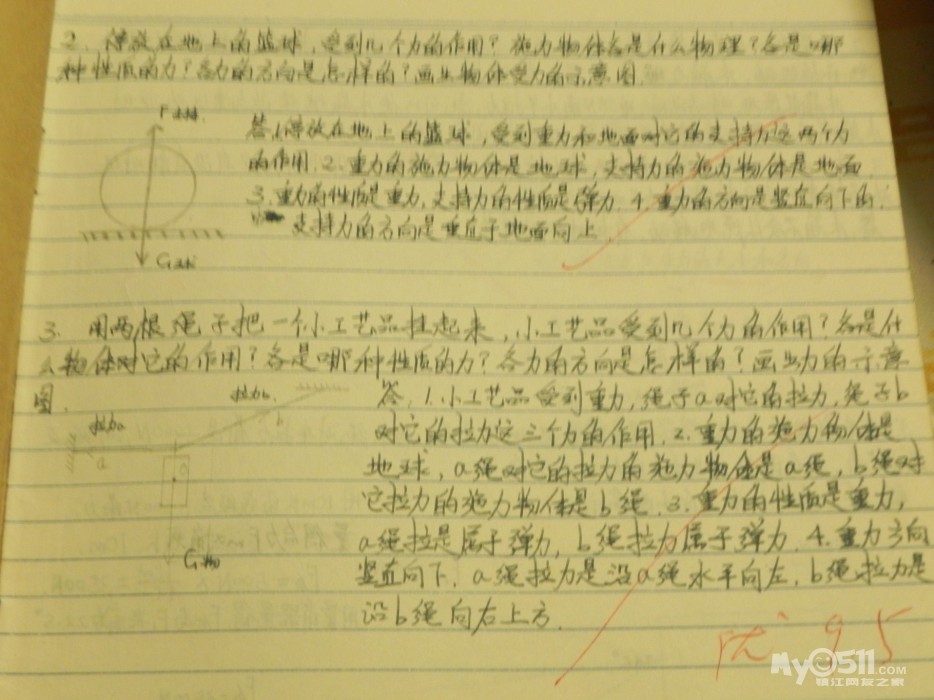 2. 停放在地上的篮球，受到几个力的作用？施力物体各是什么物理？各是哪
种性质的力？各力的方向是怎样的？画出物体受力的示意图.
F支持.
答.1.停放在地上的篮球，受到重力和地面对它的支持力这两个力
的作用.2.重力的施力物体是地球，支持力的施力物体是地面.
3.重力的性质是重力，支持力的性质是弹力.4.重力的方向是竖直向下的；
支持力的方向是垂直于地面向上.
G球
3. 用两根绳子把一个小工艺品挂起来，小工艺品受到几个力的作用？各是什
么物体对它的作用？各是哪种性质的力？各力的方向是怎样的？画出力的示意
图.
拉力b.
b
拉力a
a
G物
答.1.小工艺品受到重力，绳子a对它的拉力，绳子b
对它的拉力这三个力的作用.2.重力的施力物体是
地球，a绳对它的拉力的施力物体是a绳，b绳对
它拉力的施力物体是b绳.3.重力的性质是重力，
a绳拉是属于弹力，b绳拉力属于弹力.4.重力方向
竖直向下.a绳拉力是沿a绳水平向左，b绳拉力是
沿b绳向右上方.
优 95
My0511.com
镇江网友之家